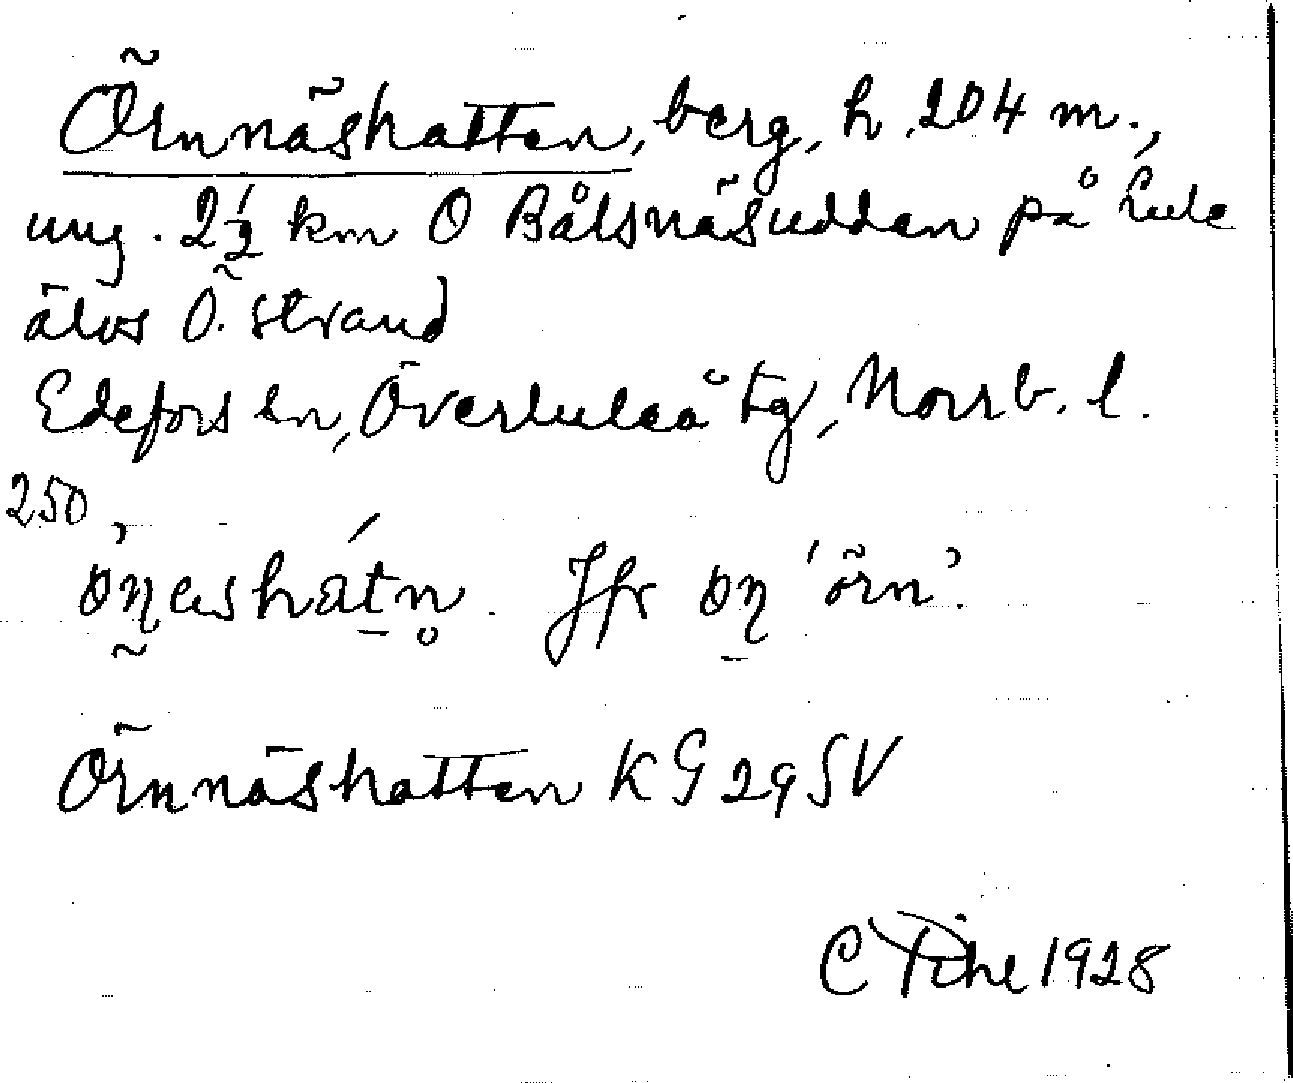 Örnnäshatten, berg, h. 204 m.,
ung. 2½ km O Bålsnäsudden på Lule
älvs Ö. strand
Edefors sn, Överluleå tg, Norrb. l.
250
Jfr 'örn'.
Örnnäshatten KG 29 SV
C Pihl 1928